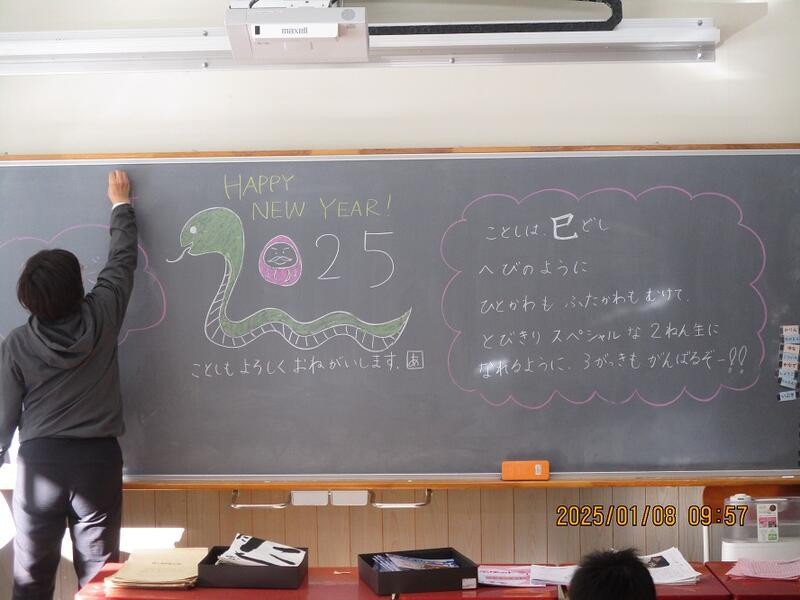 maxell
HAPPY
NEW YEAR!
2025
ことしも よろしく おねがいします。あ
ことしは 巳どし
へびのように
ひとかわも ふたかわも むけて、
とびきり スペシャル な 2ねん生に
なれるように、3がっきも がんばるぞー!!
2025/01/08 09:57